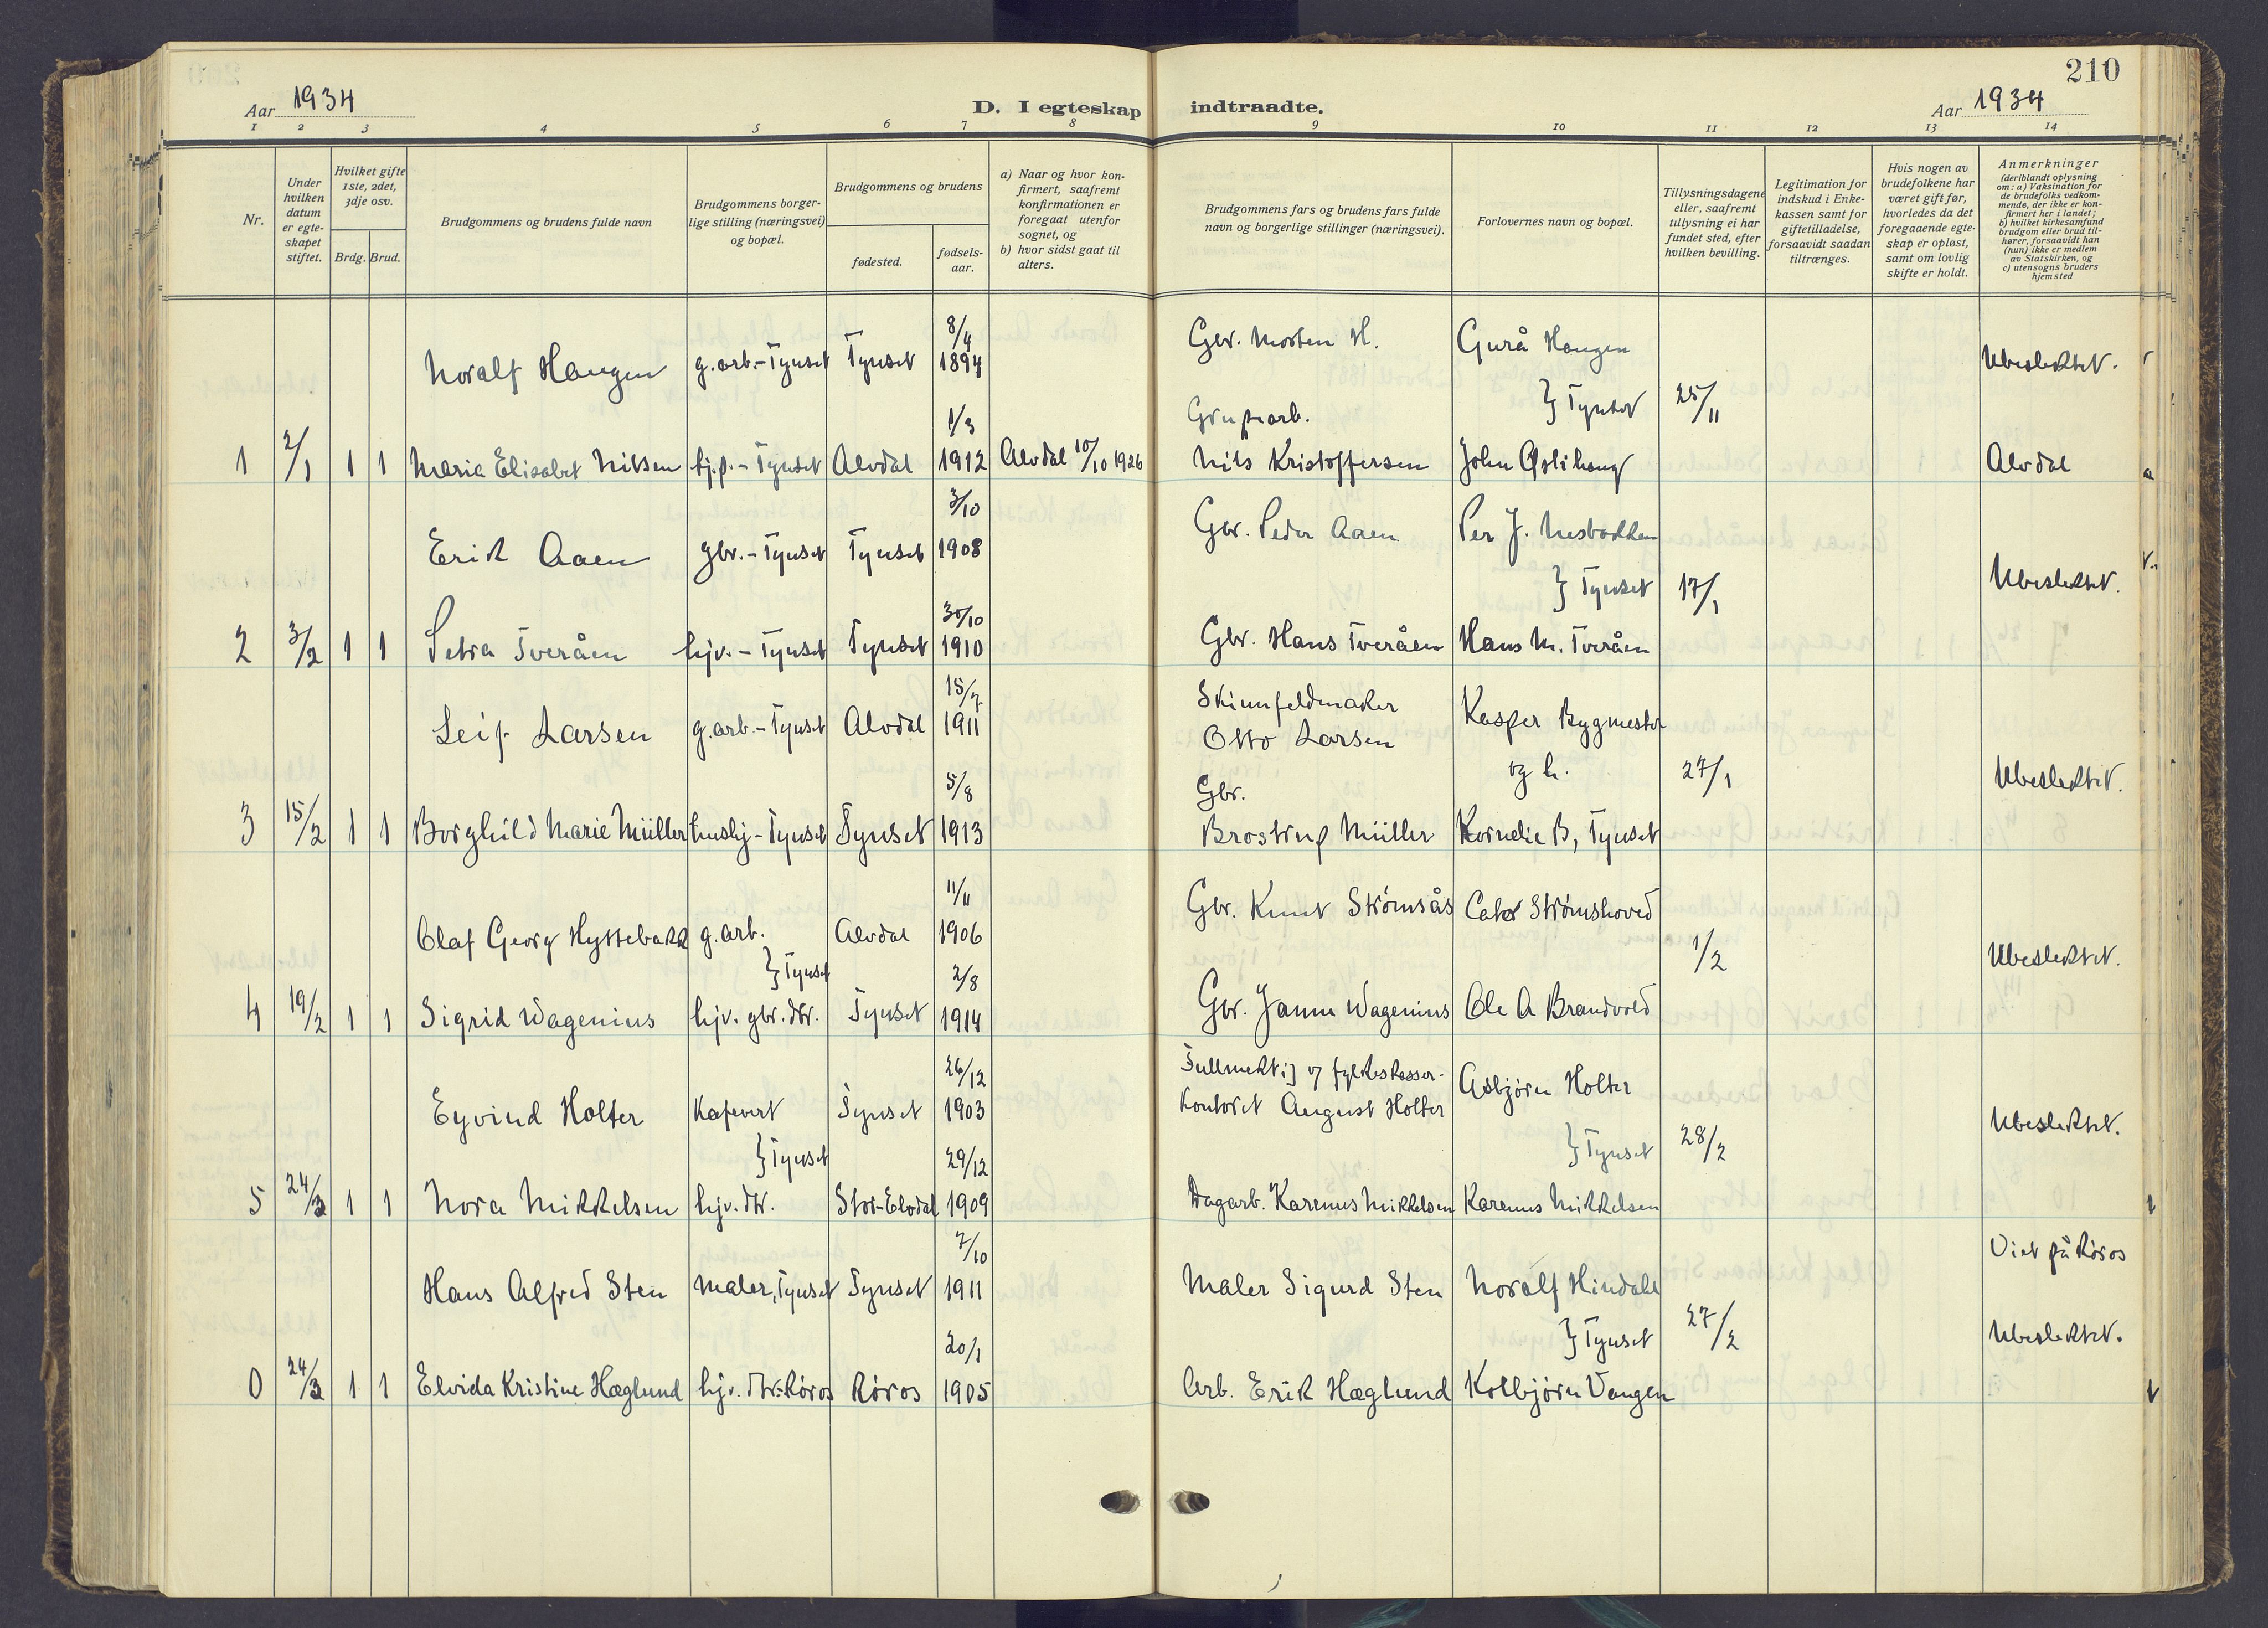 210
Aar 1934
D. I egteskap indtraadte.
Aar 1934
1 2 3 4 5 6 7 8 9 10 11 12 13 14
Nr.
Under hvilken datum er egteskapet stiftet.
Hvilket gifte 1ste, 2det, 3dje osv.
Brdg. Brud.
Brudgommens og brudens fulde navn
Brudgommens borgerlige stilling (næringsvei) og bopæl.
Brudgommens og brudens
fødested.
fødselsaar.
a) Naar og hvor konfirmert, saafremt konfirmationen er foregaat utenfor sognet, og
b) hvor sidst gaat til alters.
Brudgommens fars og brudens fars fulde navn og borgerlige stillinger (næringsvei).
Forlovernes navn og bopæl.
Tillysningsdagene eller, saafremt tillysning ei har fundet sted, efter hvilken bevilling.
Legitimation for indskud i Enkekassen samt for giftetilladelse, forsaavidt saadan tiltrænges.
Hvis nogen av brudefolkene har været gift før, hvorledes da det foregaaende egteskap er opløst, samt om lovlig skifte er holdt.
Anmerkninger
(deriblandt oplysning om: a) Vaksination for de brudefolks vedkommende, der ikke er konfirmert her i landet;
b) hvilket kirkesamfund brudgom eller brud tilhører, forsaavidt han (hun) ikke er medlem av Statskirken, og
c) utensogns bruders hjemsted
Noralf Haugen g.arb.-Tynset Tynset 8/4 1894 Gbr. Morten H. Gurå Haugen Ubeslektet.
} Tynset 25/11
1 2/1 1 1 Maria Elisabet Nilsen hj.p.-Tynset Alvdal 1/3 1912 Alvdal 10/10 1926 Gruvearb. Nils Kristoffersen John Østihaug Alvdal
Erik Aaen gbr.-Tynset Tynset 3/10 1908 Gbr. Peder Aaen Per J. Nesbakken
} Tynset 17/1 Ubeslektet.
2 3/2 1 1 Petra Tveråen hjv.-Tynset Tynset 30/10 1910 Gbr. Hans Tveråen Hans M. Tveråen
Leif Larsen g.arb-Tynset Alvdal 15/7 1911 Skinnfeldmaker Otto Larsen Kasper Bygmester
og h. 27/1 Ubeslektet.
3 15/2 1 1 Borghild Marie Müller hushj-Tynset Tynset 5/8 1913 Gbr. Brostrup Müller Kornelie B, Tynset
Olaf Georg Hyttebakk g.arb. Alvdal 11/11 1906 Gbr. Knut Strømsås Strømshoved
} Tynset 1/2 Ubeslektet.
4 19/2 1 1 Sigrid Wagenius hjv. gbr. dtr. Tynset 2/8 1914 Gbr. Wagenius Ole A Brandvold
Eyvind Holter Kafevert Tynset 26/12 1903 Fullmektig v fylkeskasserkontoret August Holter Asbjørn Holter
} Tynset } Tynset 28/2 Ubeslektet.
5 24/3 1 1 Nora Mikkelsen hjv. dtr. Stor-Elvdal 29/12 1909 Dagarb. Karenus Mikkelsen Karenus Mikkelsen
Viet på Røros
Hans Alfred Sten Maler, Tynset Tynset 7/10 1911 Maler Sigurd Sten Noralf Hindal
} Tynset 27/2 Ubeslektet.
0 24/3 1 1 Elvida Kristine Hæglund hjv. dtr. Røros Røros 20/1 1905 Arb. Erik Hæglund Kolbjørn Vangen